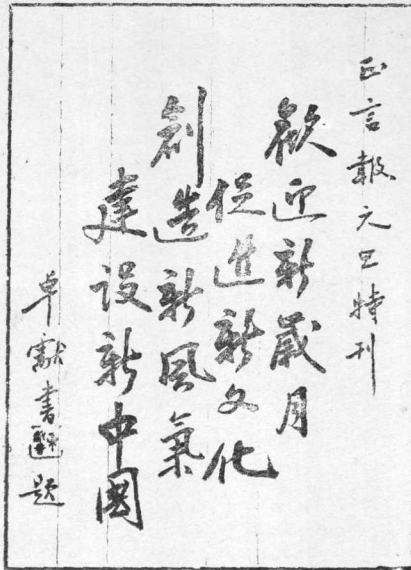 正言報元旦特刊
歡迎新歲月
促進新文化
創造新風氣
建設新中國
卓獻書題